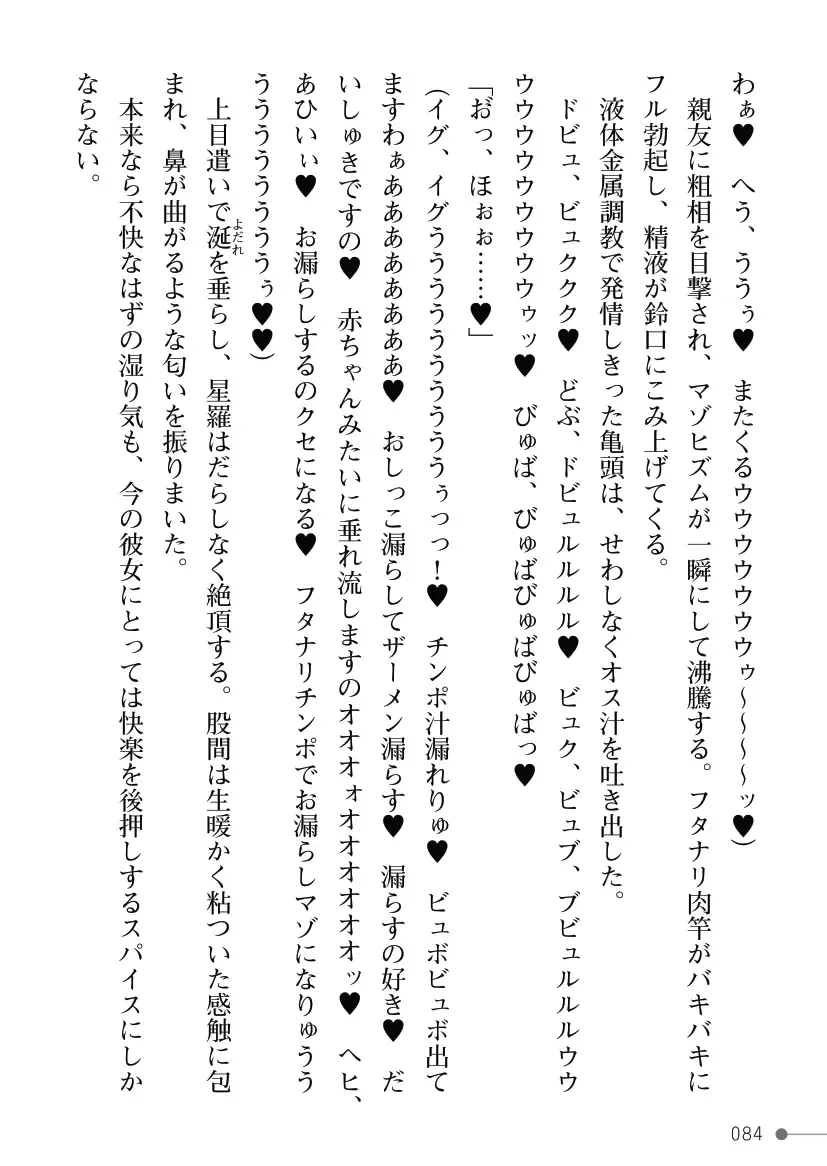 わぁ♥　へう、ううぅ♥　またくるウウウウウウウウゥ～～～～ッ♥）
　親友に粗相を目撃され、マゾヒズムが一瞬にして沸騰する。フタナリ肉竿がバキバキに
フル勃起し、精液が鈴口にこみ上げてくる。
　液体金属調教で発情しきった亀頭は、せわしなくオス汁を吐き出した。
　ドビュ、ビュククク♥　どぶ、ドビュルルルル♥　ビュク、ビュブ、ブビュルルルウウ
ウウウウウウウウウウゥッ♥　びゅば、びゅばびゅばびゅばっ♥
「おっ、ほぉぉ……♥」
（イグ、イグうううううううううううぅっっ！♥　チンポ汁漏れりゅ♥　ビュボビュボ出て
ますわぁああああああああ♥　おしっこ漏らしてザーメン漏らす♥　漏らすの好き♥　だ
いしゅきですの♥　赤ちゃんみたいに垂れ流しますのオオオォオオオオオオオッ♥　へヒ、
あひいぃ♥　お漏らしするのクセになる♥　フタナリチンポでお漏らしマゾになりゅうう
うううううううううぅ♥♥）
　上目遣いで涎（よだれ）を垂らし、星羅はだらしなく絶頂する。股間は生暖かく粘ついた感触に包
まれ、鼻が曲がるような匂いを振りまいた。
　本来なら不快なはずの湿り気も、今の彼女にとっては快楽を後押しするスパイスにしか
ならない。
084